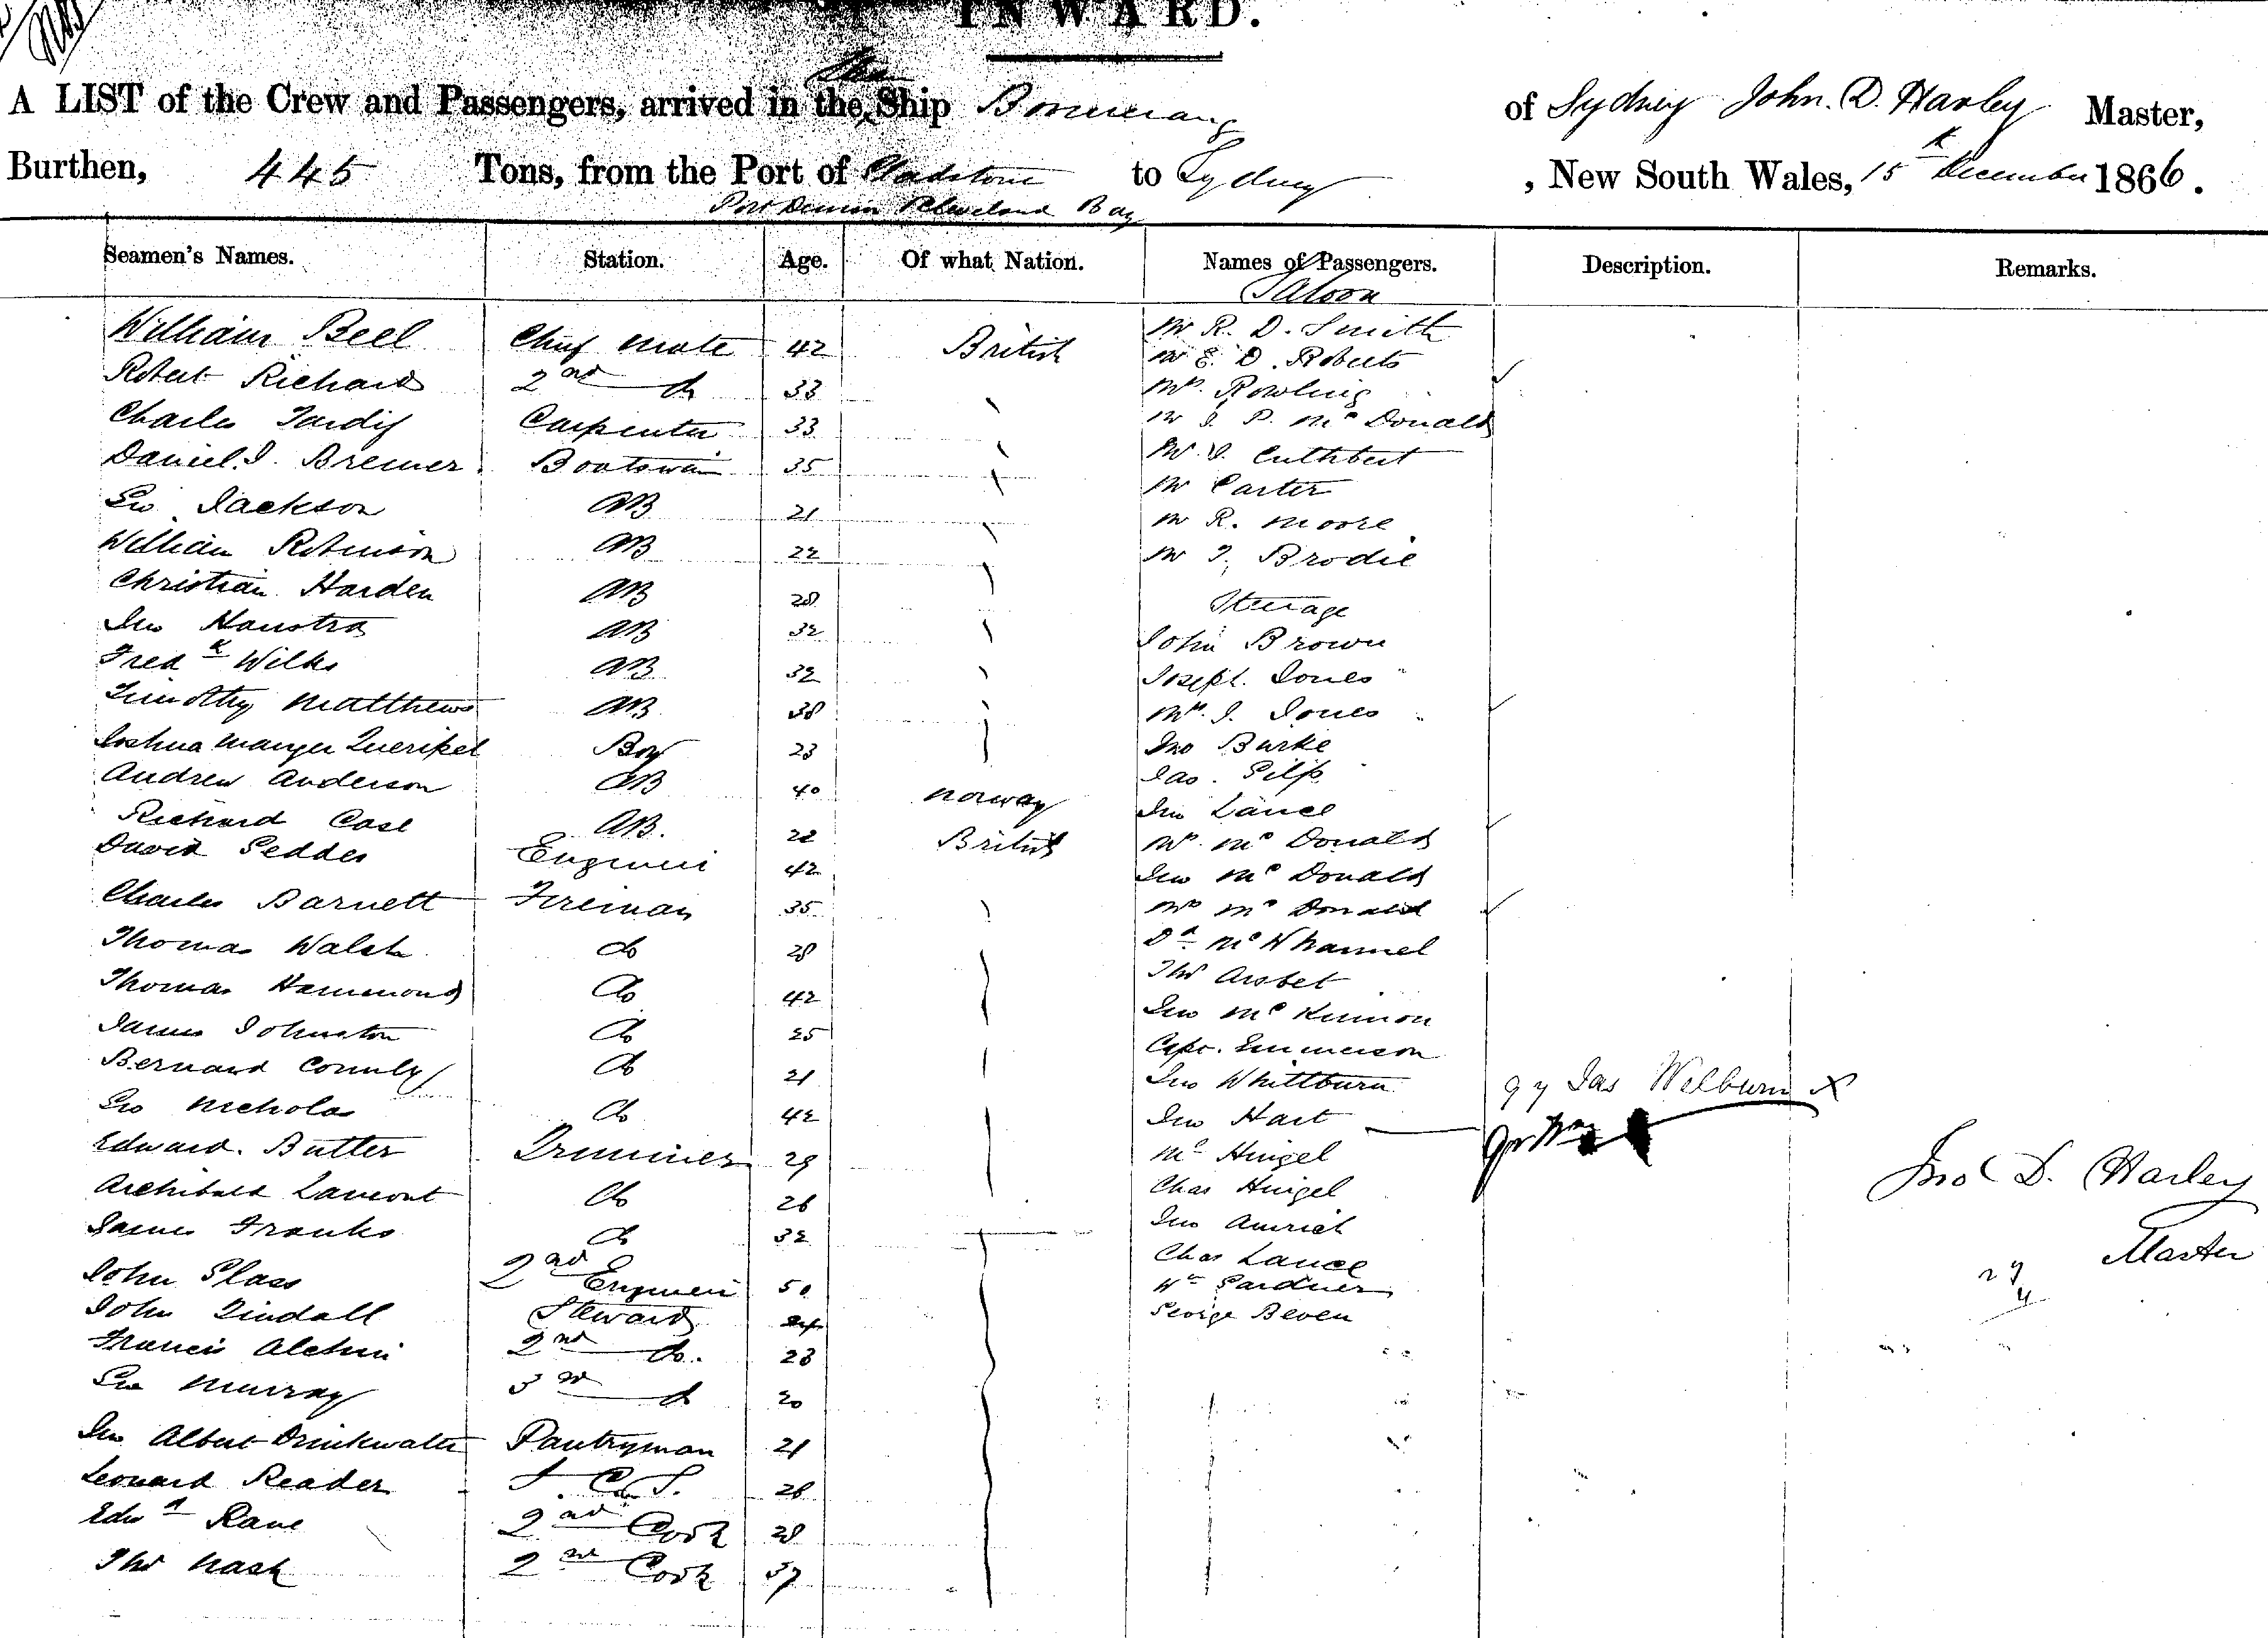 INWARD.
A LIST of the Crew and Passengers, arrived in the Ship Boomerang of Sydney John. D. Harley Master,
Burthen, 445 Tons, from the Port of Gladstone to Sydney, New South Wales, 15th December 1866.
Port Denison Cleveland Bay
Seamen's Names. Station. Age. Of what Nation. Names of Passengers. Description. Remarks.
Saloon
William Bell Chief Mate 42 British Mr R. D. Smith
Mr E. D. Roberts
Robert Richard 2nd do 33 Mrs. Rowling
Charles Tardif Carpenter 33 Mr J. P. McDonald
Daniel. J. Bremer Boatswain 35 Mr. J. Cuthbert
Mr Carter
Geo Jackson AB 21 Mr R. Moore
William Robinson AB 22 Mr T. Brodie
Christian Harden AB 28 Steerage
Jno Hanstra AB 32 John Brown
Fredk Wilks AB 32 Joseph. Jones
Timothy Matthews AB 38 Mrs. J. Jones
Joshua Manger Queripel Boy 23 Jno Burke
Andrew Anderson AB 40 Norway Jas.
Richard Case AB. 22 British Jno Lance
David Geddes Engineer 42 McDonald
Jno McDonald
Charles Barnett Fireman 35 McDonald
Thomas Walsh do 28 Dd McWhannel
Thomas Hammond do 42 Thos
James Johnston do 25 Jno McKinnon
Bernard Connly do 21 Capt. Emmerson
Jno Whittburn qy Jas Welburn X
Geo Nicholas do 42 Jno Hart
Edward. Butler Trimmer 29 Hingel
Archibald Lamont do 26 Chas Hingel
James Franks do 32 Jno Amrich
John Glass 2nd Engineer 50 Chas Lance
John Tindall Steward Wm Gardner
Francis Alchin 2nd do. 23 George Beven
Geo Murray 3rd do 20
Jno Albert Drinkwater Pantryman 21
Leonard Reader 26
Edwd Rane 2nd Cook 28
Thos Nash 2nd Cook 37
Jno D. Harley
Master
29